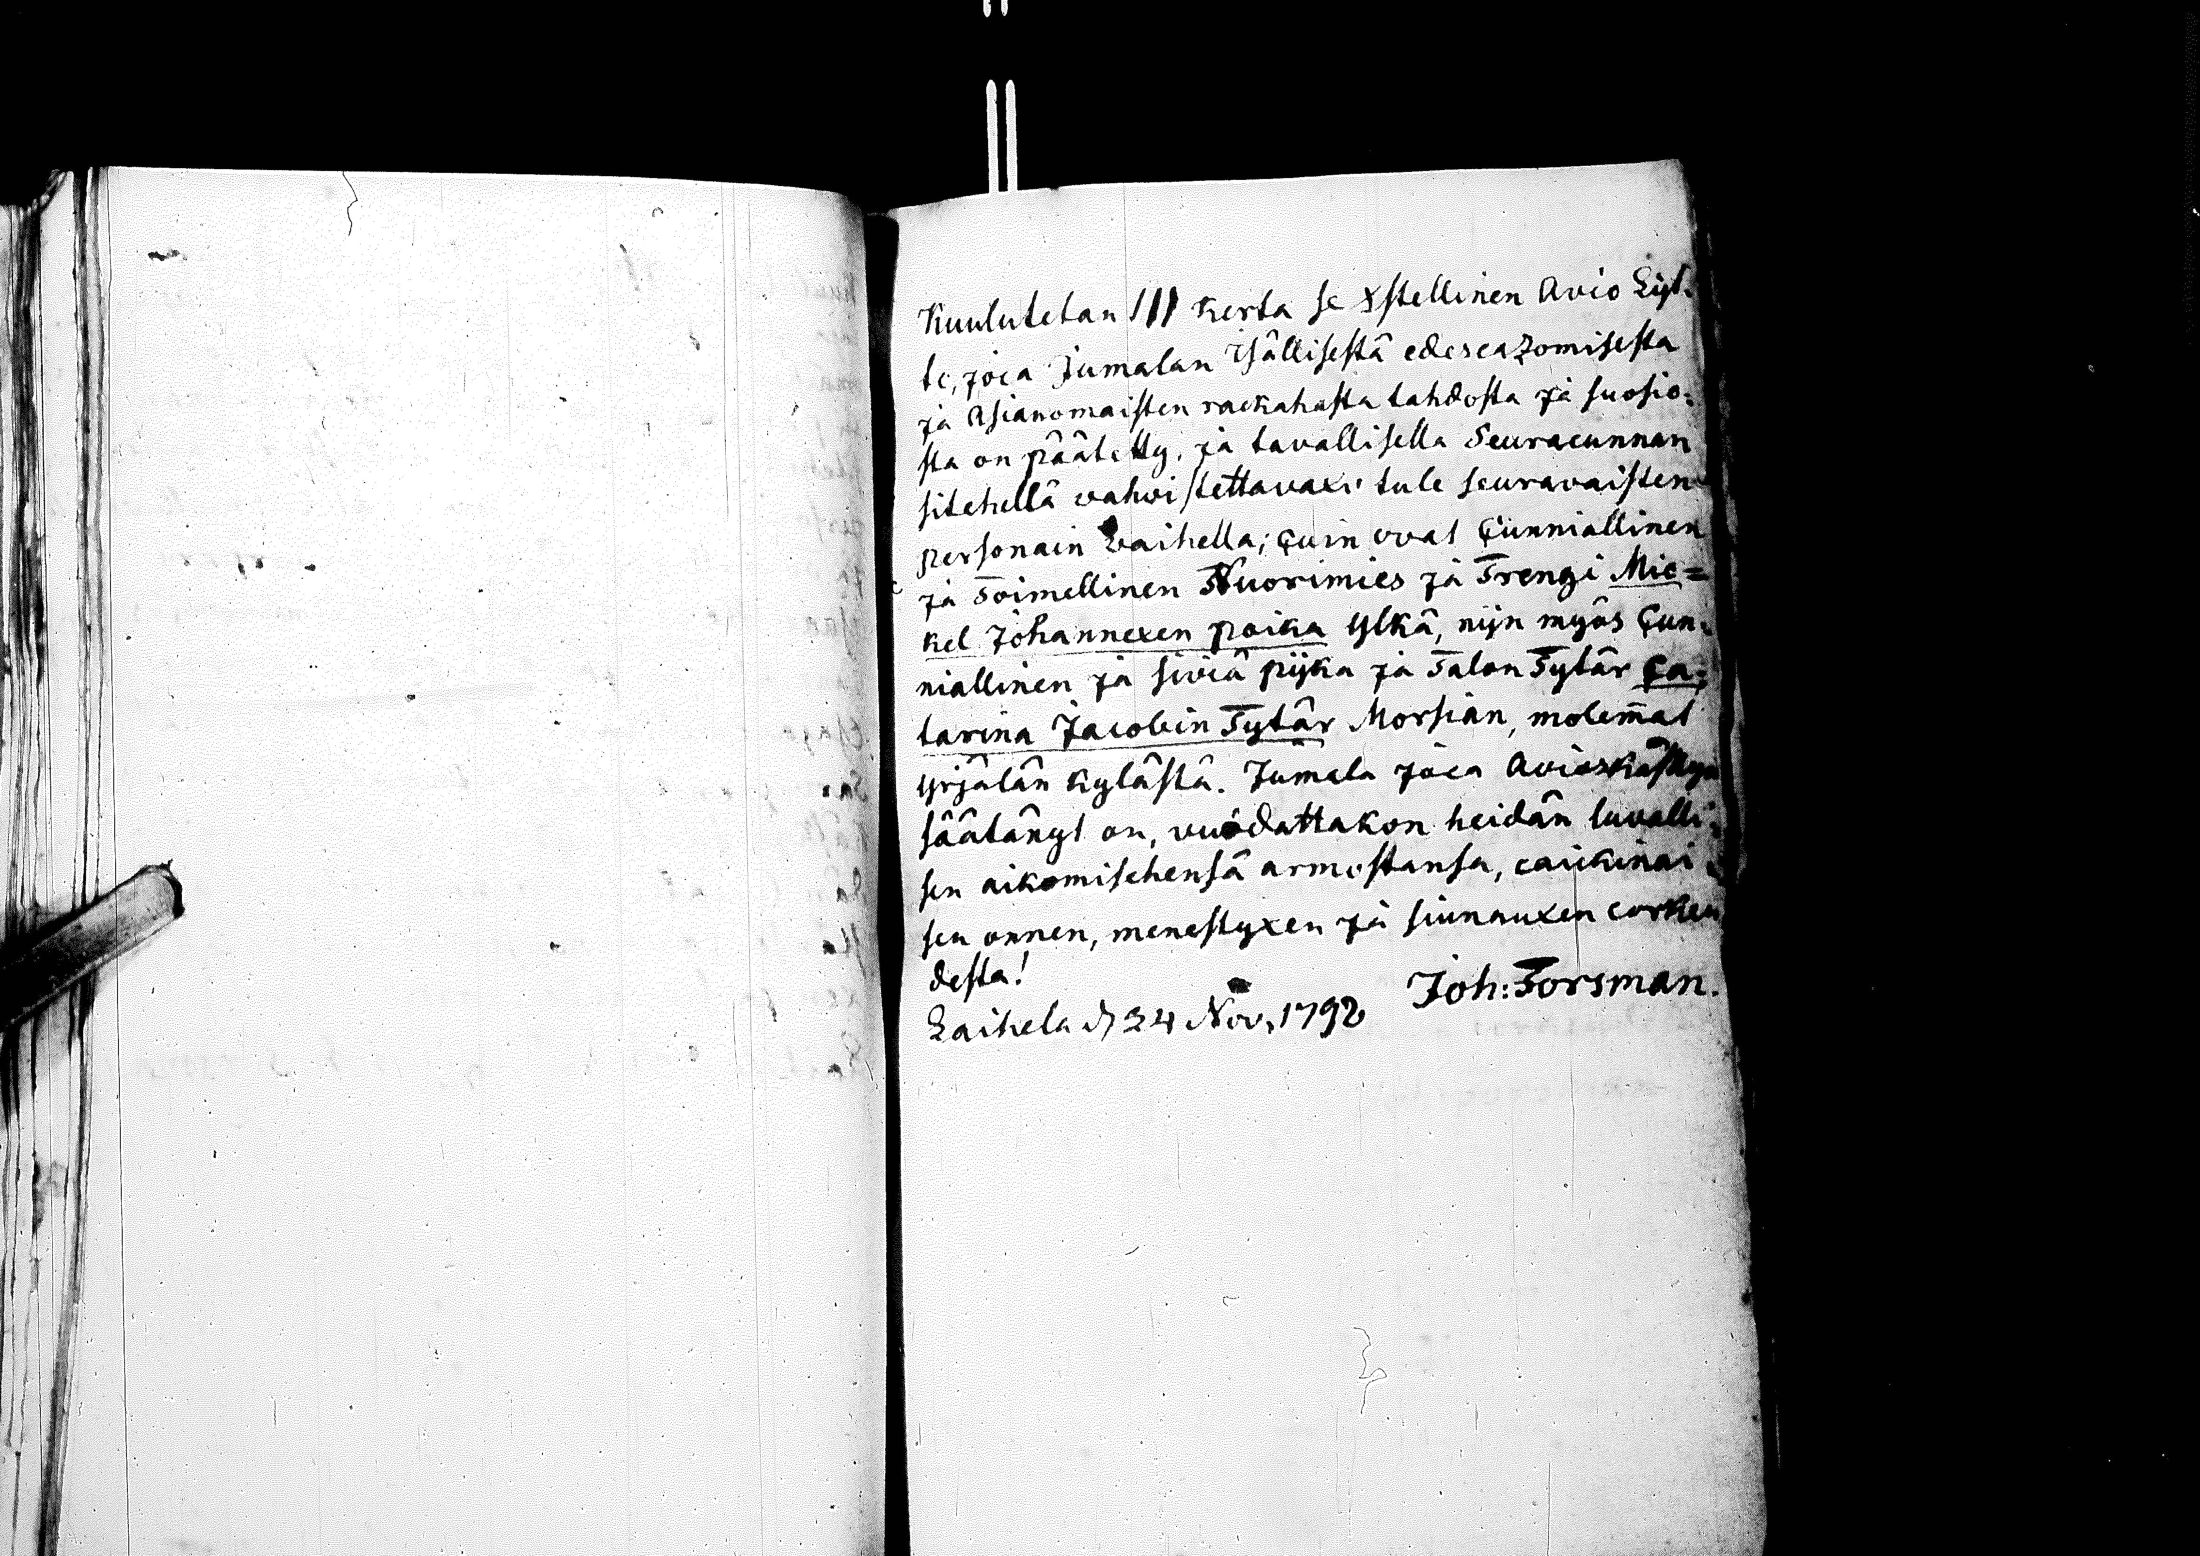 Kuulutetan III kerta se Xstellinen Avio Liit-
to, joca Jumalan Isällisestä edescazomisesta
ja Asianomaisten rackahasta tahdosta ja suosio-
sta on päätetty, ja tavallisella Seuracunnan
sitehellä vahvistettavaxi tule seuravaisten
personain vaihella; cuin ovat Cunniallinen
ja Toimellinen Nuorimies ja Trengi Mic=
kel Johannexen poika Ylkä, nijn myös Cun-
niallinen ja siviä pijka ja Talon Tytär Ca-
tarina Jacobin Tytär Morsian, molemat
yrjälän kylästä. Jumala joca Avioskäskyn
säätänyt on, vuodattakon heidän luvalli-
sen aikomisehensä armostansa, caickinai-
sen onnen, menestyxen ja siunauxen corkeu
desta!
Joh: Forsman.
Laihela d 24 Nov. 1792